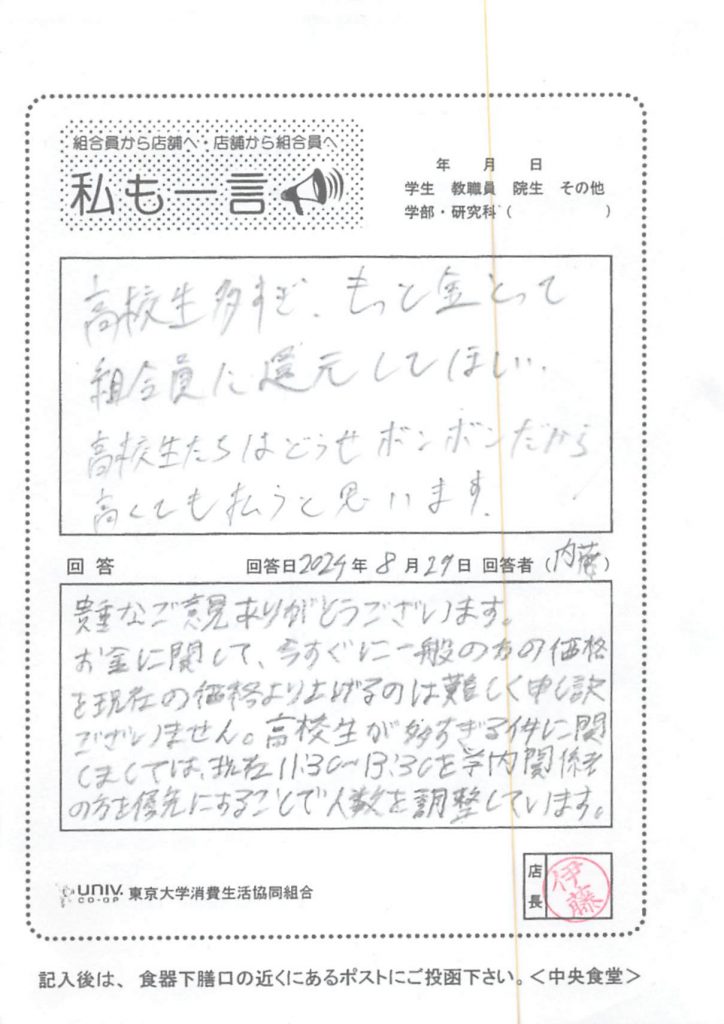 組合員から店舗へ・店舗から組合員へ
私も一言
年 月 日
学生 教職員 院生 その他
学部・研究科( )
高校生多すぎ、もっと金とって
組合員に還元してほしい、
高校生たちはどうせボンボンだから
高くても払うと思います。
回答 回答日2024年8月29日 回答者(内藤)
貴重なご意見ありがとうございます。
お金に関して、今すぐに一般の方の価格
を現在の価格より上げるのは難しく申し訳
ございません。高校生が多すぎる件に関
しましては、現在11:30~13:30を学内関係者
の方を優先にすることで人数を調整しています。
UNIV. CO-OP 東京大学消費生活協同組合
店長
伊藤
記入後は、食器下膳口の近くにあるポストにご投函下さい。<中央食堂>